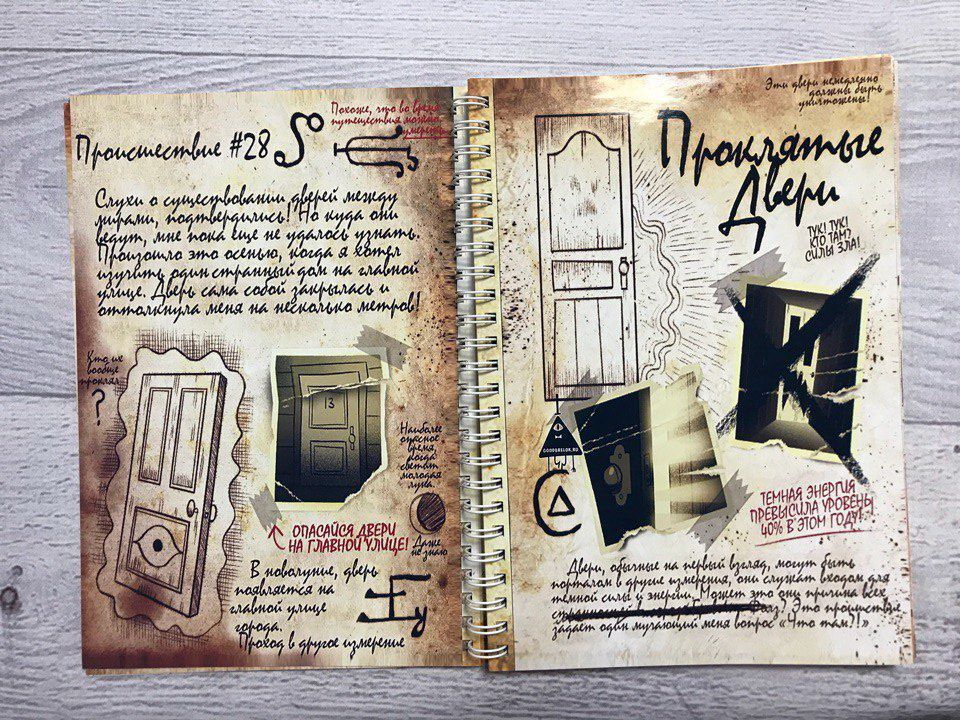 Похоже, что во время
путешествия можно
умереть
Происшествие #28
Слухи о существовании дверей между
мирами, подтвердились! Но куда они
ведут, мне пока еще не удалось узнать.
Произошло это осенью, когда я хотел
изучить один странный дом на главной
улице. Дверь сама собой закрылась и
оттолкнула меня на несколько метров!
Кто их
вообще
проклял
?
13
Наиболее
опасное
время,
когда
светит
молодая
луна.
ОПАСАЙСЯ ДВЕРИ
НА ГЛАВНОЙ УЛИЦЕ!
Даже
не знаю
В новолуние, дверь
появляется на
главной улице
города.
Проход в другое измерение
Эти двери немедленно
должны быть
уничтожены!
Проклятые
Двери
ТУК! ТУК!
КТО ТАМ?
СИЛЫ ЗЛА!
GOODBRELOK.RU
ТЕМНАЯ ЭНЕРГИЯ
ПРЕВЫСИЛА УРОВЕНЬ
40% В ЭТОМ ГОДУ!
Двери, обычные на первый взгляд, могут быть
порталом в другие измерения, они служат входом для
тёмной силы и энергии. Может это они причина всех
странностей в городе Фолз? Это происшествие
задает один мучающий меня вопрос «Что там?!»